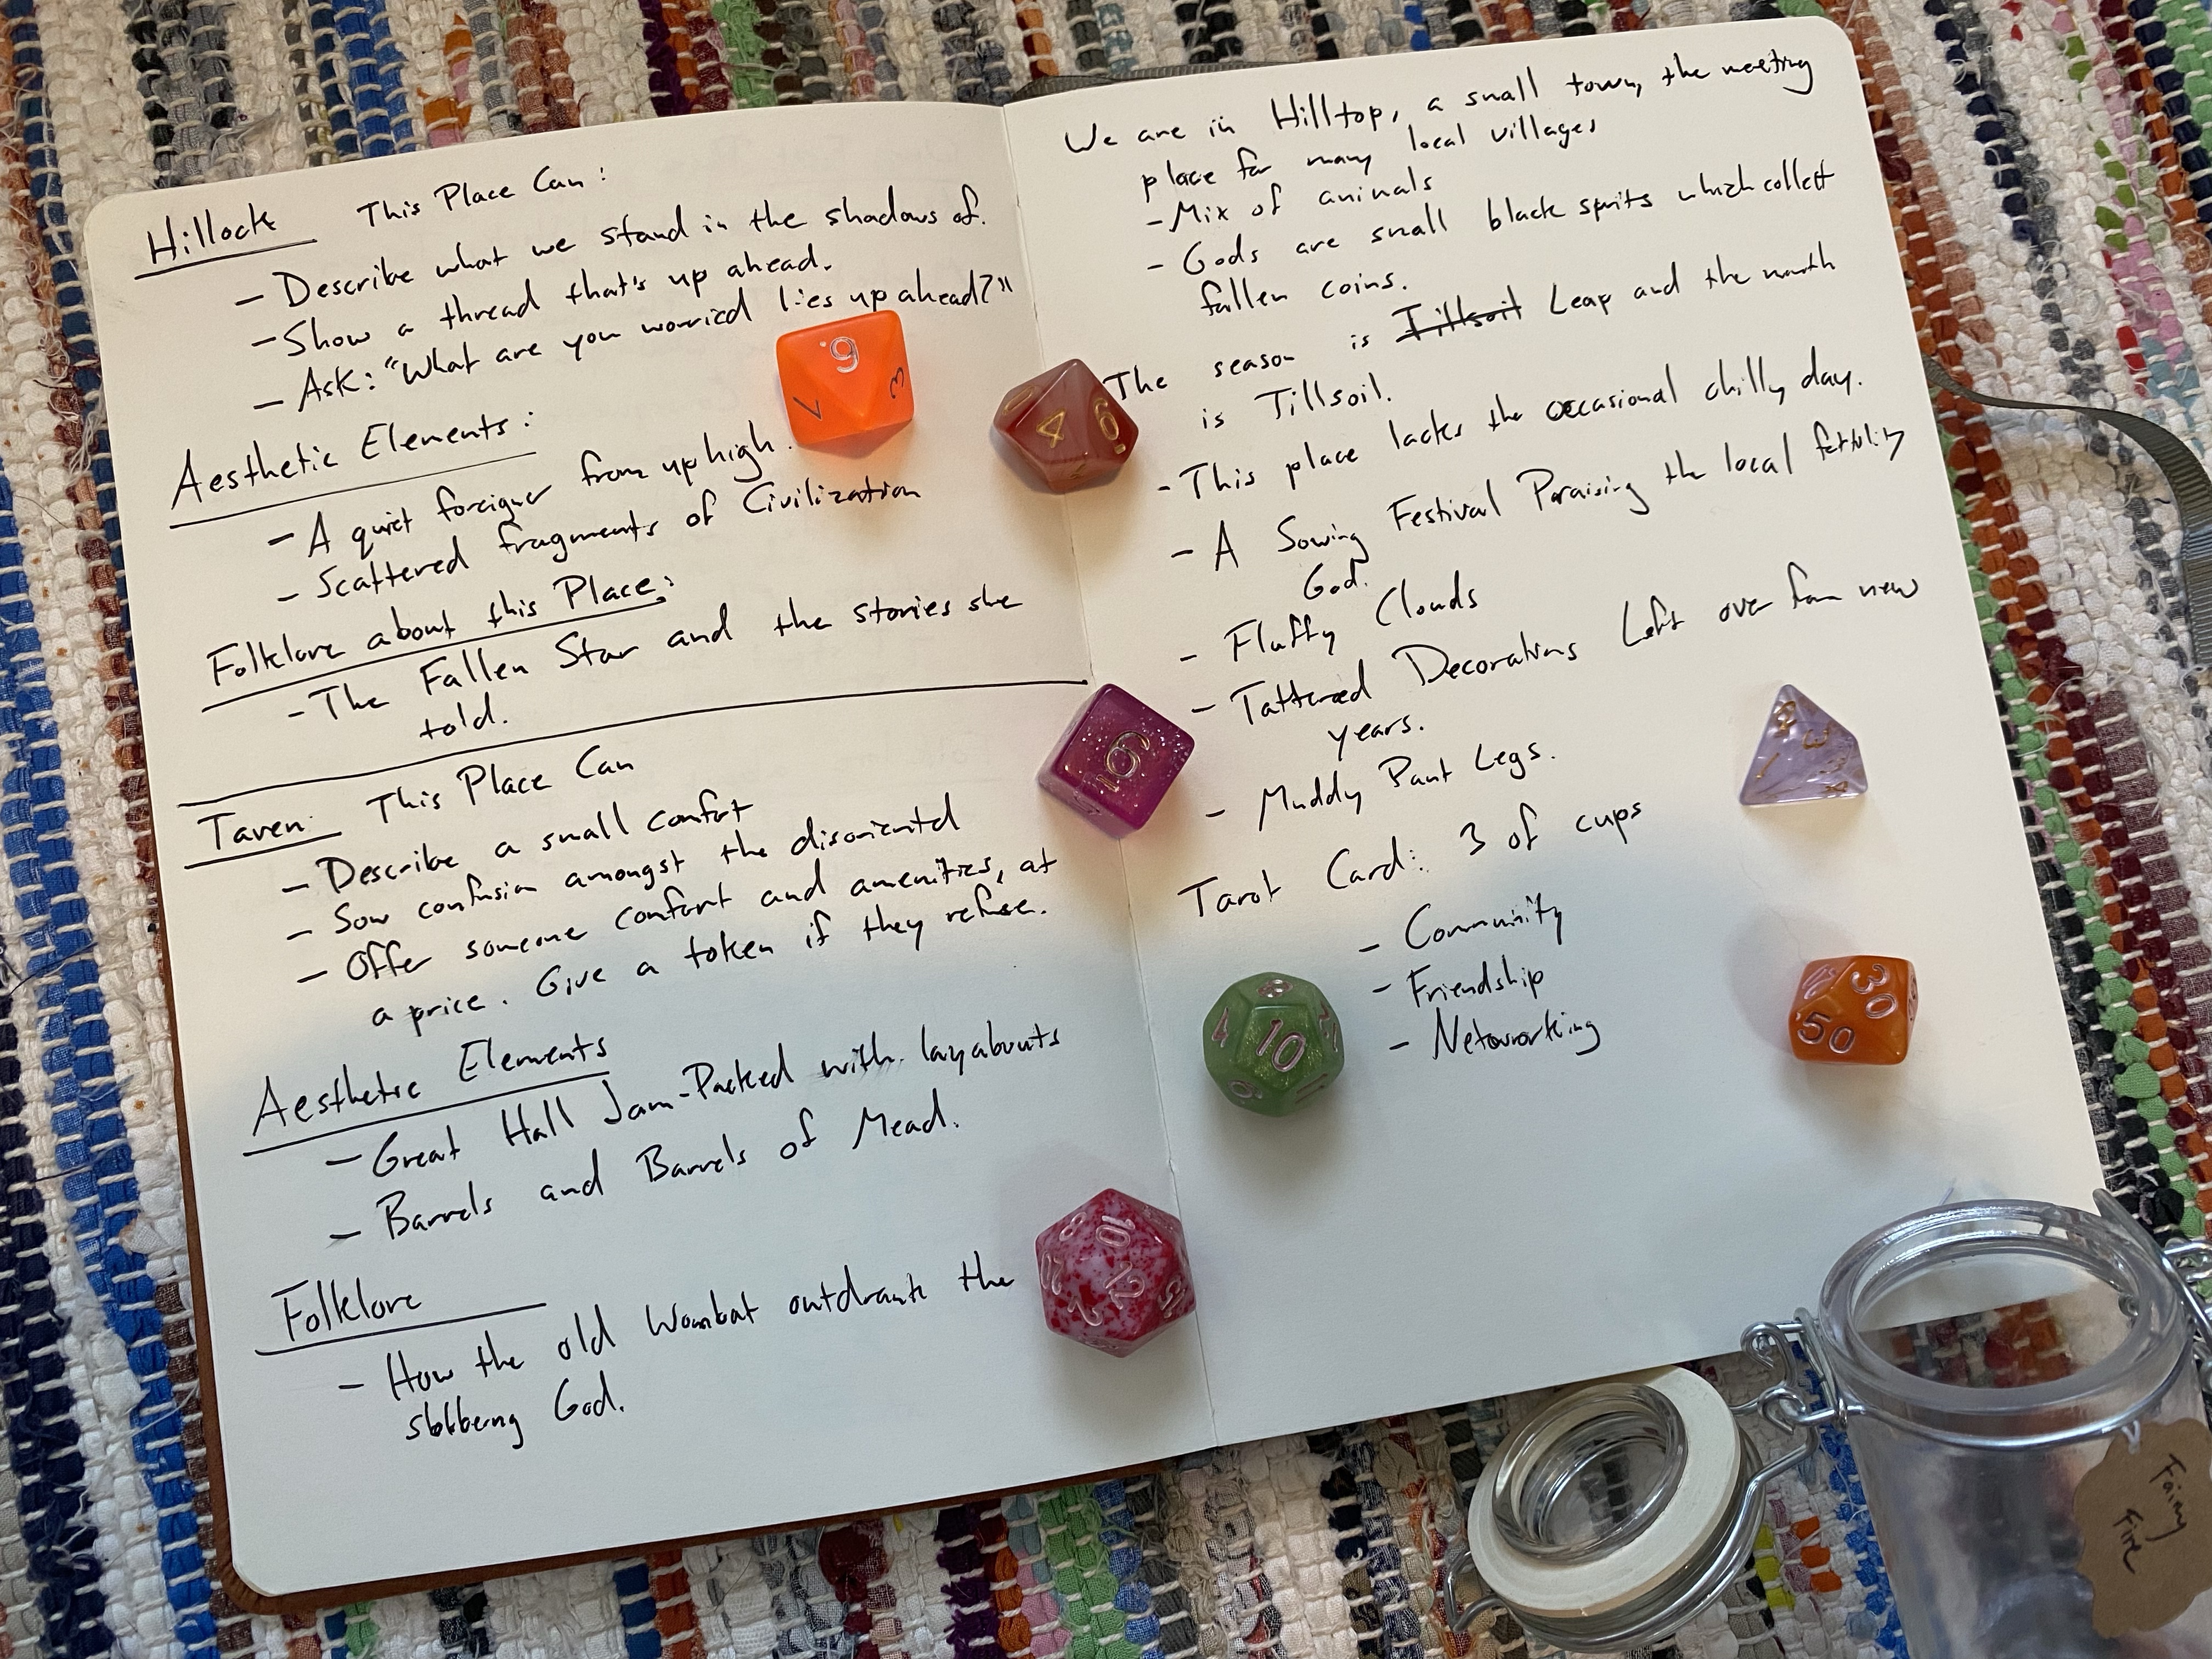 Hillock This Place Can:
- Describe what we stand in the shadows of.
- Show a thread that's up ahead.
- Ask: "What are you worried lies up ahead?"
Aesthetic Elements:
- A quiet foreigner from up high.
- Scattered fragments of Civilization
Folklore about this Place:
- The Fallen Star and the stories she
told.
Taven: This Place Can
- Describe a small comfort
- Sow confusion amongst the disoriented
- Offer someone comfort and amenities, at
a price. Give a token if they refuse.
Aesthetic Elements
- Great Hall Jam-Packed with layabouts
- Barrels and Barrels of Mead.
Folklore
- How the old Wombat outdrank the
God.
We are in Hilltop, a small town, the meeting
place for many local villages
- Mix of animals
- Gods are small black spirits which collect
fallen coins.
The season is Tillsoil Leap and the month
is Tillsoil.
- This place lacks the occasional chilly day.
- A Sowing Festival Praising the local fertility
God.
- Fluffy Clouds
- Tattered Decorations Left over from new
years.
- Muddy Pant Legs.
Tarot Card: 3 of cups
- Community
- Friendship
- Networking
9
3
4
6
6
4
3
1
10
4
8
12
30
50
10
8
20
12
2
15
Fairy
Fire